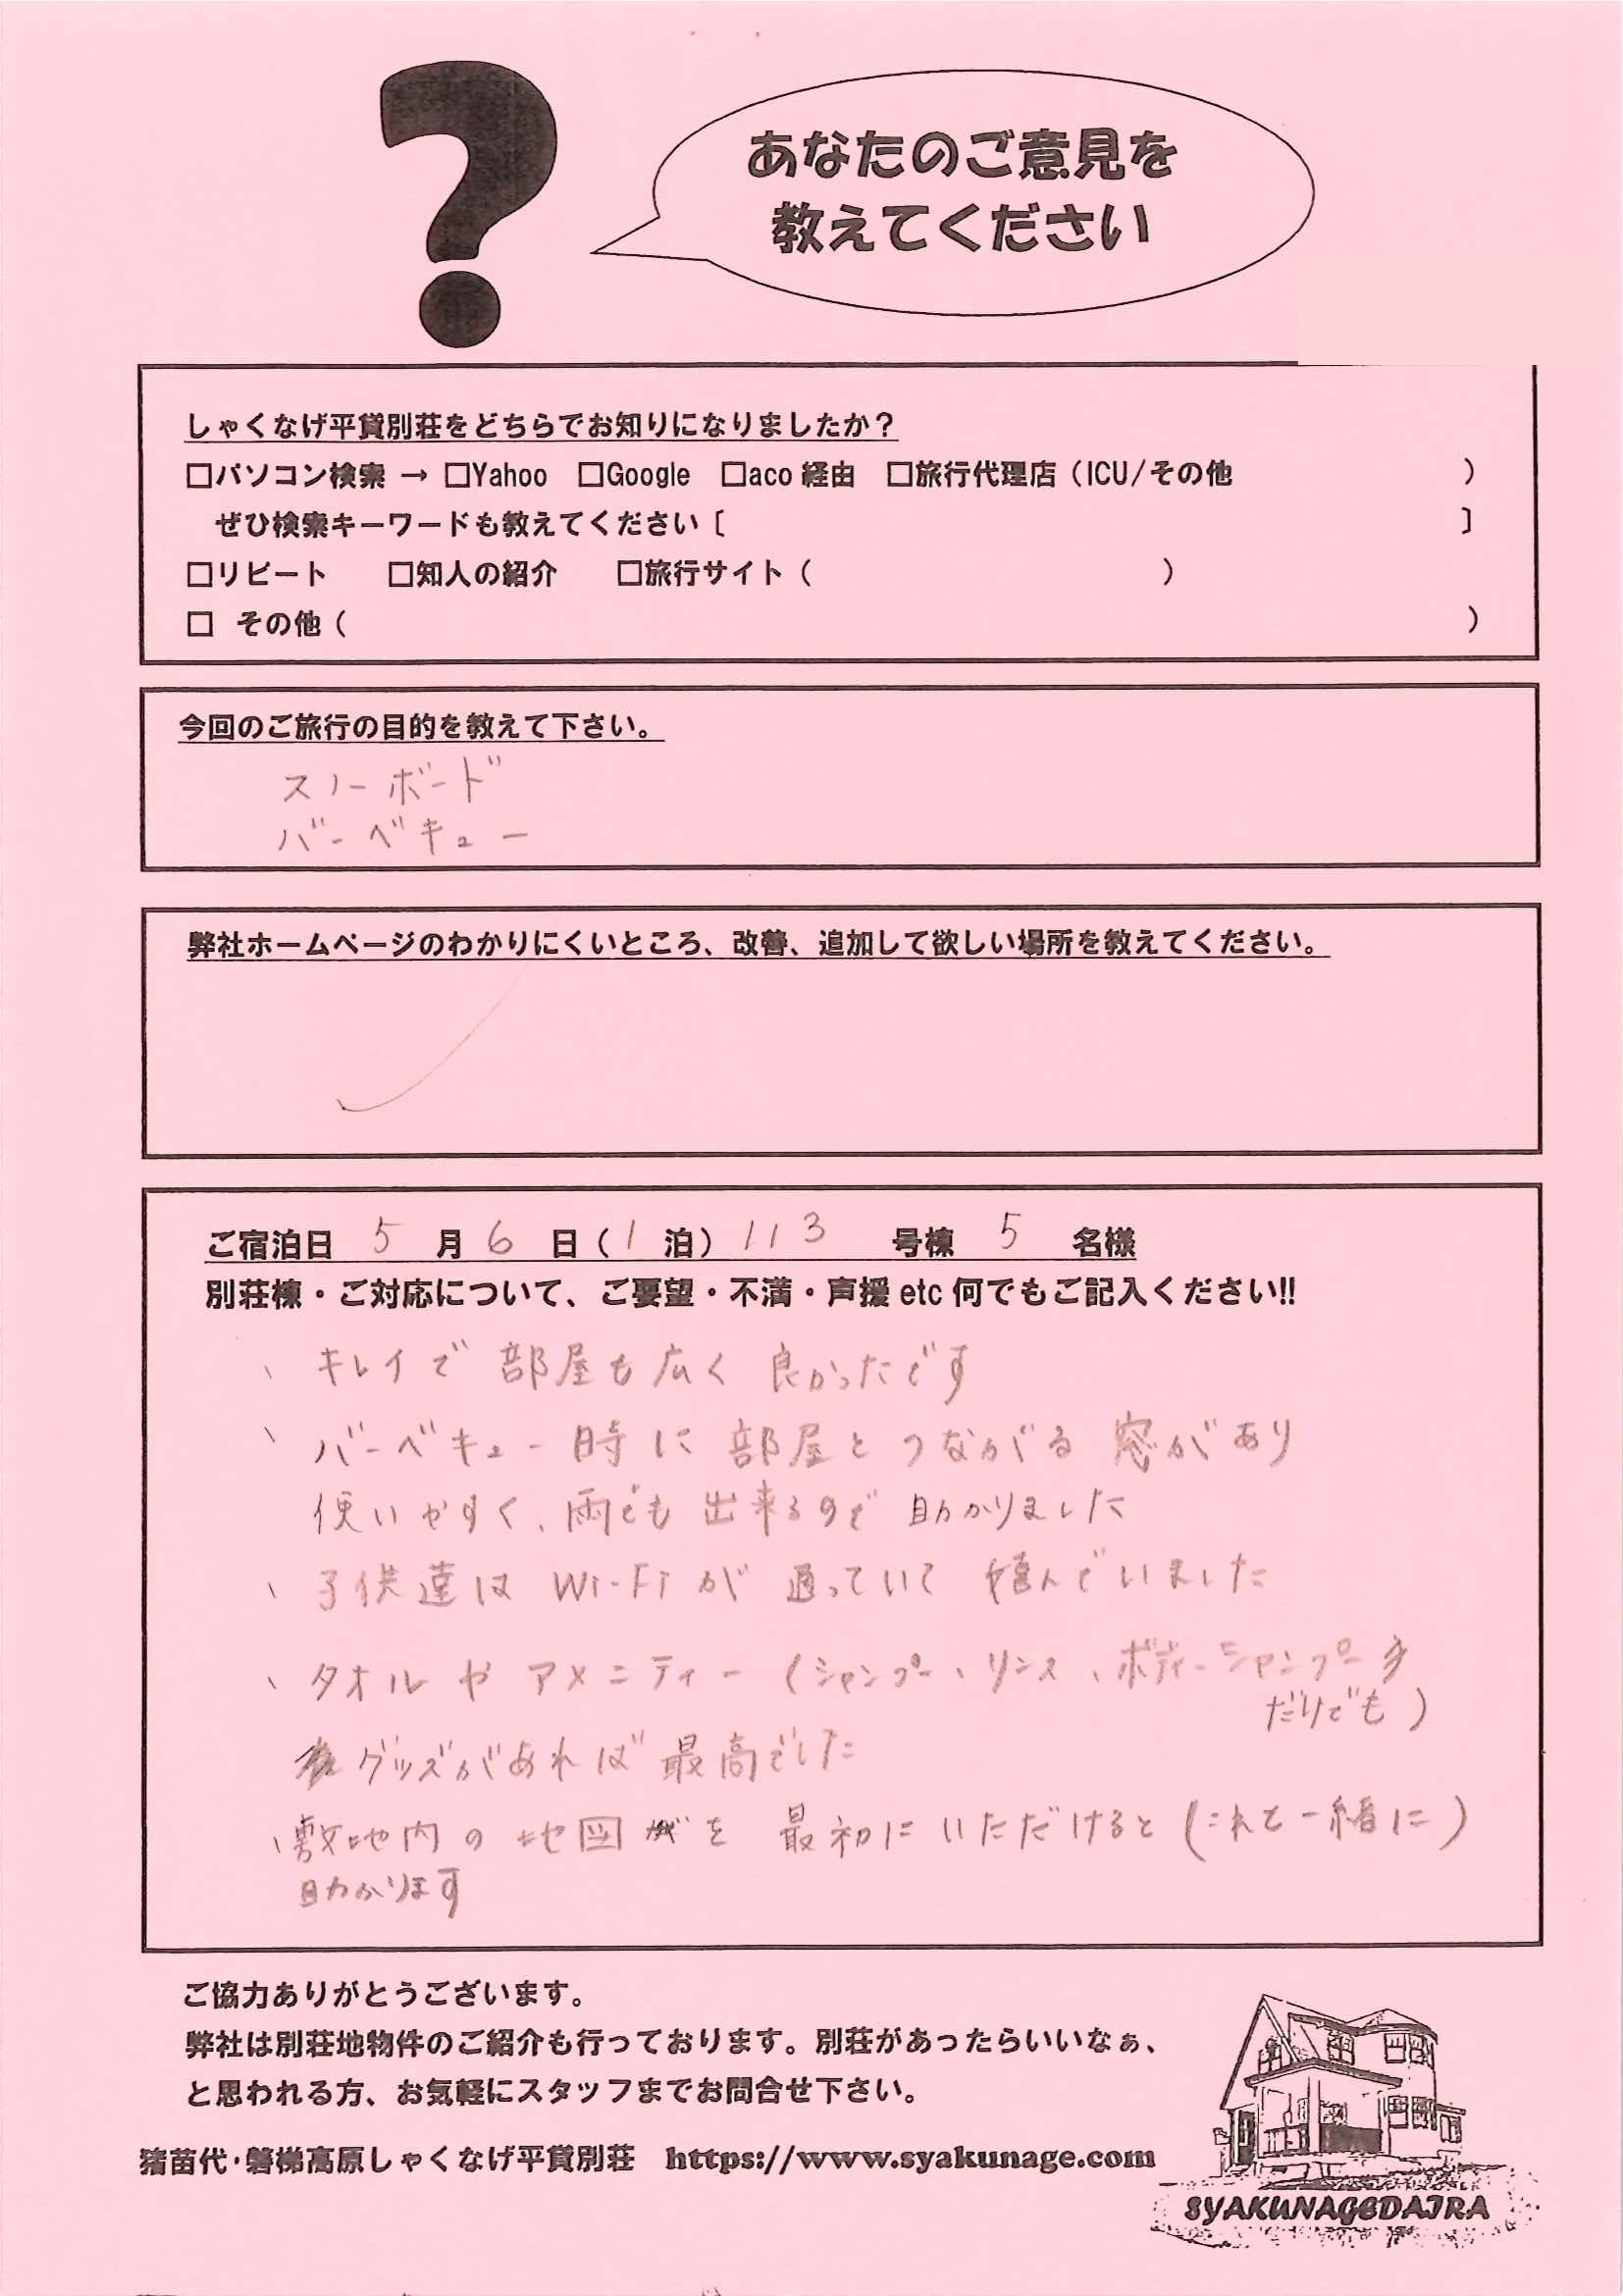 あなたのご意見を
教えてください
しゃくなげ平貸別荘をどちらでお知りになりましたか？
□パソコン検索 → □Yahoo □Google □aco 経由 □旅行代理店（ICU/その他 ）
ぜひ検索キーワードも教えてください〔 〕
□リピート □知人の紹介 □旅行サイト（ ）
□ その他（ ）
今回のご旅行の目的を教えて下さい。
スノーボード
バーベキュー
弊社ホームページのわかりにくいところ、改善、追加して欲しい場所を教えてください。
ご宿泊日 5 月 6 日（1 泊）113 号棟 5 名様
別荘棟・ご対応について、ご要望・不満・声援 etc 何でもご記入ください!!
、キレイで 部屋も広く 良かったです
、バーベキュー時に 部屋と つながる 窓があり
使いやすく、雨でも 出来るので 助かりました
、子供達は Wi-Fi が 通っていて 喜んでいました
、タオルや アメニティー（シャンプー、リンス、ボディーシャンプー
だけでも）
グッズがあれば 最高でした
、敷地内の 地図を 最初にいただけると（これと一緒に）
助かります
ご協力ありがとうございます。
弊社は別荘地物件のご紹介も行っております。別荘があったらいいなぁ、
と思われる方、お気軽にスタッフまでお問合せ下さい。
猪苗代・磐梯高原しゃくなげ平貸別荘 https://www.syakunage.com
SYAKUNAGEDAIRA